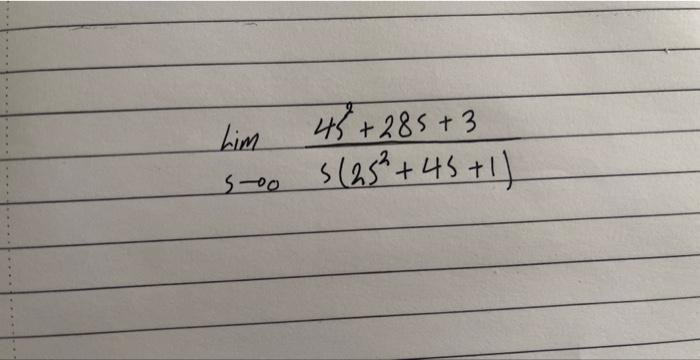 Lim 4s² + 28s + 3
s→∞ s(2s² + 4s + 1)